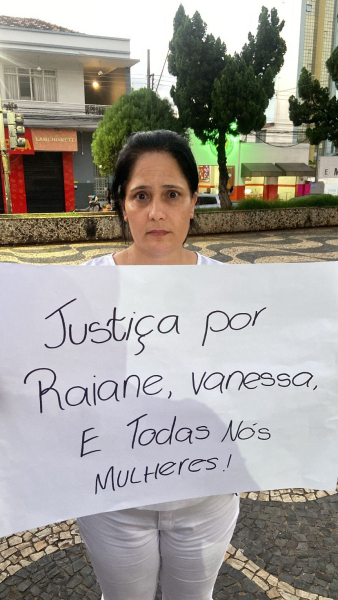 Justiça por
Raiane, Vanessa,
E Todas Nós
MULHERES!